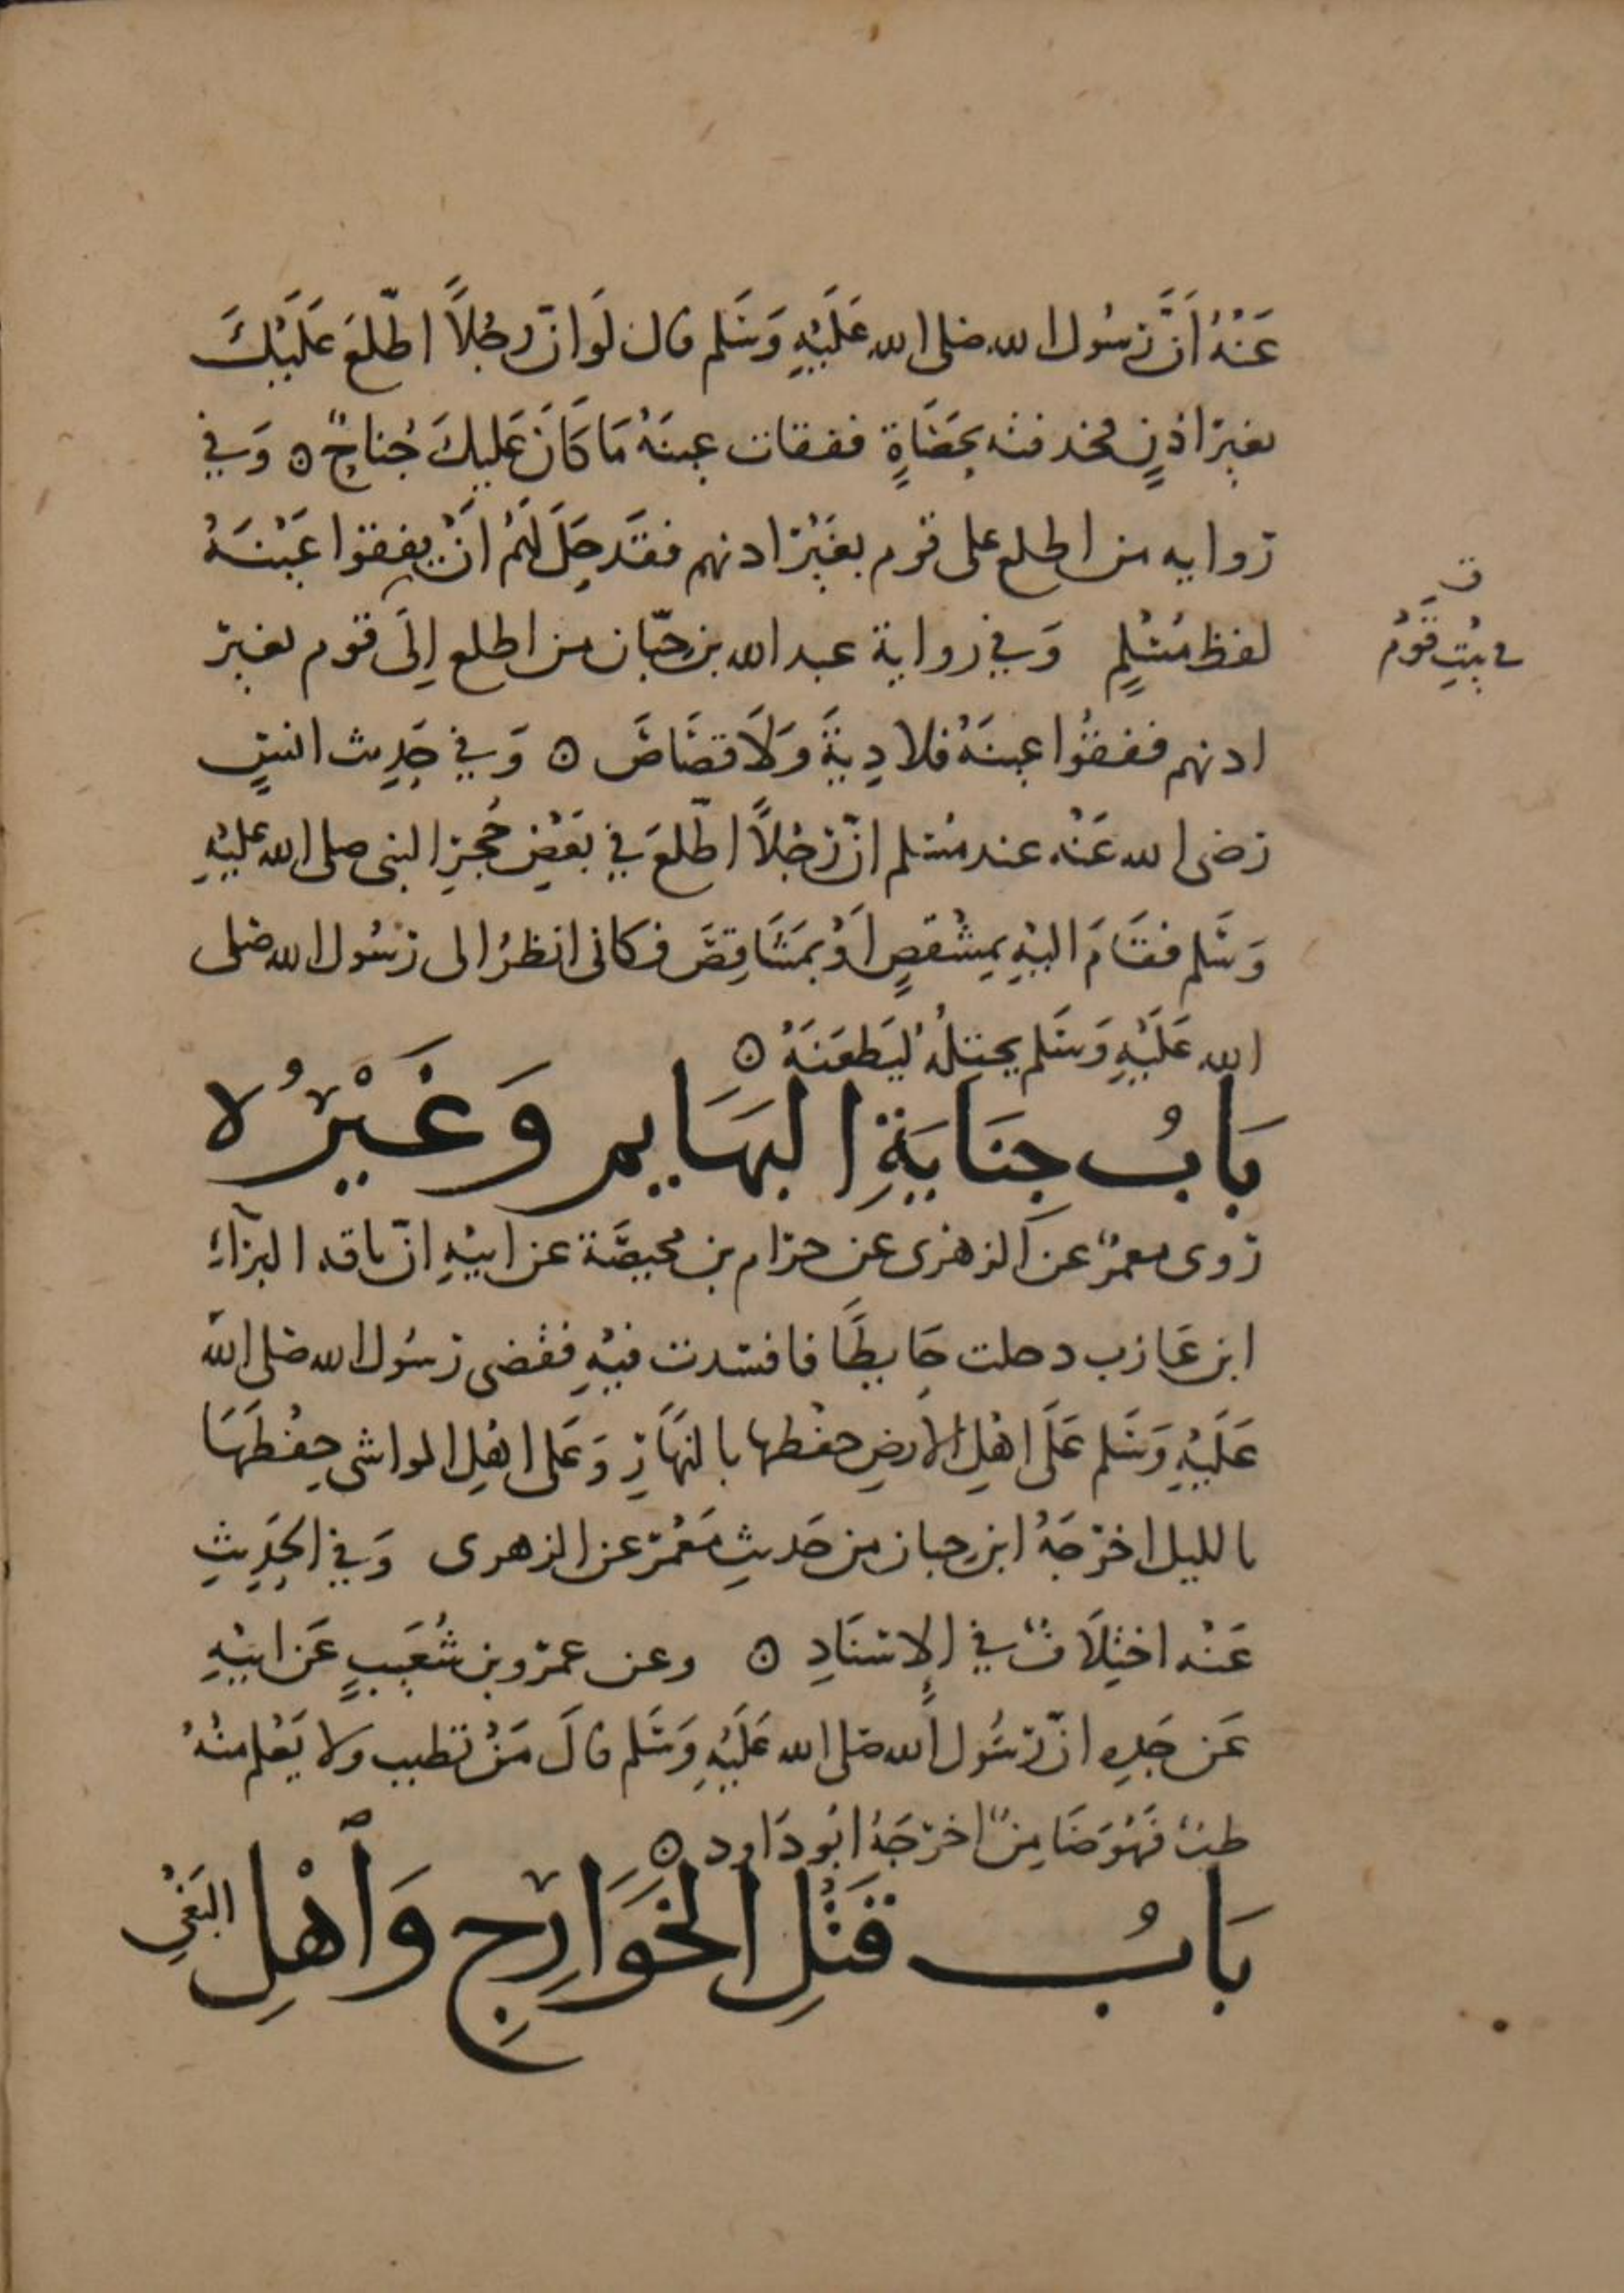 عَنْهُ أَنَّ رَسُول الله صلى الله عَلَيْهِ وَسَلم قال لَو انّ رجُلاً اطّلعَ عَلَيْكَ
بغير اذنٍ فخذفته بحَصَاةٍ ففقات عينَهُ مَا كَانَ عَليكَ جُناحٌ ۞ وَفي
روايه من اطلع على قوم بغَيْر ادنهم فقَد حَلَّ لَهُمْ انْ يفقؤا عَيْنَهُ
لفظ مُسْلمٍ وَفي رواية عبد الله بن حبّان من اطلع اِلَى قوم بغير
ادنهم ففقؤُا عينَهُ فلا دِيَةَ وَلَا قصَاصَ ۞ وَفي حَدِيث انسٍ
رضى الله عَنْه عند مُسلم انّ رَجُلاً اطّلعَ في بَعْضِ حُجَرِ النبى صلى الله عليْهِ
وَسَلم فقَامَ اليْهِ بمِشْقصٍ اَوْ بمَشَاقِصَ فكانى انظرُ الى رَسُول الله صلى
الله عَلَيْهِ وَسَلم يختِلُهُ ليَطعَنَهُ ۞
بَابُ جِنَايَةِ البَهَايم وَغَيْرُه
رَوى معمرٌ عن الزهرى عن حرام بن محيصَة عن ابيْهِ انّ ناقه البراءِ
ابن عَازب دخلت حَايطًا فافسَدت فيْهِ فقضى رَسُول الله صلى الله
عَلَيْهِ وَسَلم عَلَى اهْلِ الأرضِ حفْظها بالنهَارِ وَعَلى اهْلِ المواشى حِفْظَهَا
بالليل اخرَجَهُ ابن حبان من حَديثِ مَعْمَر عن الزهرى وَفي الحَدِيثِ
عَنْه اختِلَافٌ في الإسنَادِ ۞ وعن عمرو بن شُعَيبٍ عَن ابيْهِ
عَن جَدِهِ انّ رَسُول الله صلى الله عَلَيْهِ وَسَلم قالَ مَنْ تطبب ولا يَعْلم منْهُ
طبٌ فَهُوَ ضَامِنٌ اخرَجَهُ ابُو دَاود ۞
بَابُ قَتْلِ الخَوَارِجِ وَاَهْلِ البَغْىِ
في بيْتِ قوْمٍ